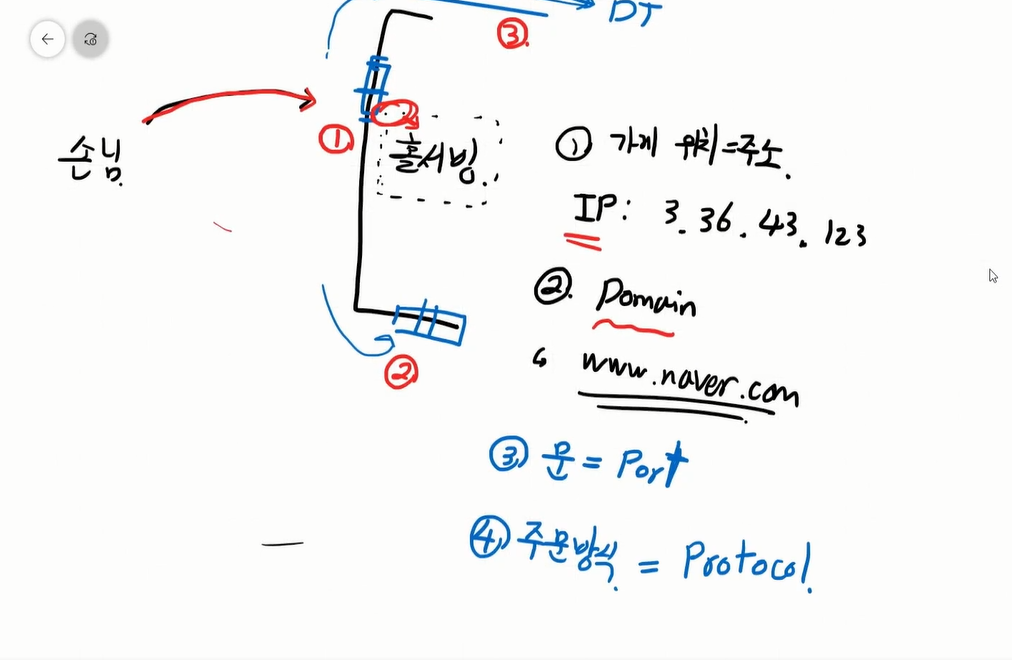 DT
③.
①
손님.
홀서빙.
① 가게 위치=주소.
IP: 3.36.43.123
②. Domain
www.naver.com
②
③ 문 = Port
④ 주문방식. = Protocol.